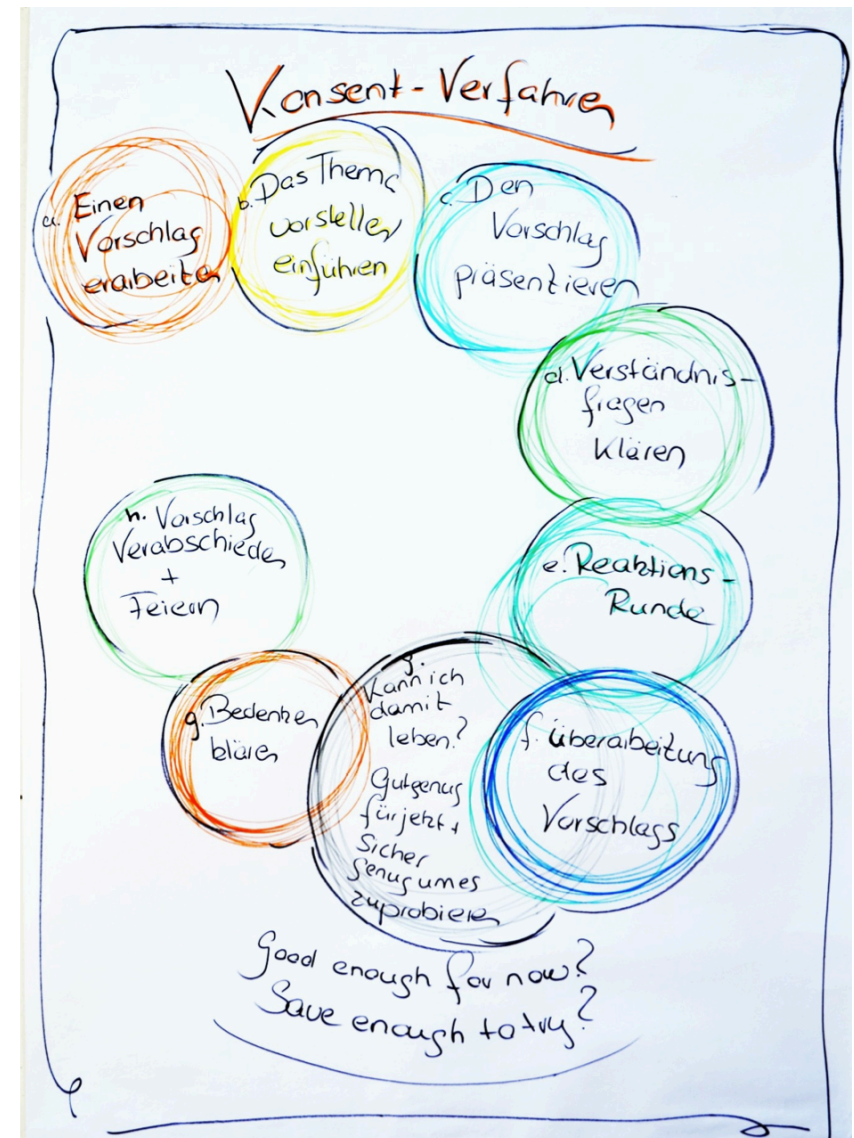 Konsent-Verfahren
a. Einen
Vorschlag
erarbeiten
b. Das Thema
vorstellen
einführen
c. Den
Vorschlag
präsentieren
d. Verständnis-
fragen
klären
e. Reaktions-
Runde
f. überarbeitung
des
Vorschlags
g.
Kann ich
damit
leben?
Gut genug
für jetzt +
Sicher
genug um es
zuprobieren
g. Bedenken
klären
h. Vorschlag
Verabschieden
+
Feiern
Good enough for now?
Save enough to try?